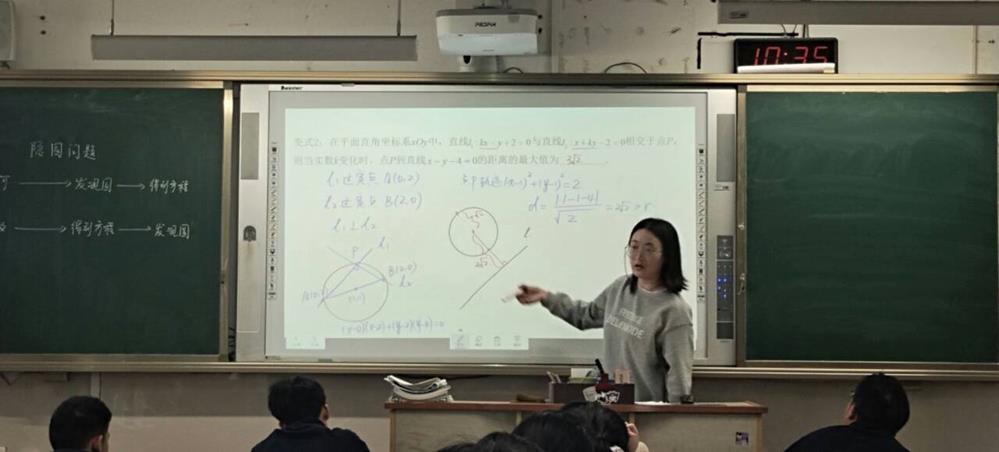 10:35
隐圆问题
发现圆 得到方程
得到方程 发现圆
变式2:在平面直角坐标系xOy中,直线l₁:kx-y+2=0与直线l₂:x+ky-2=0相交于点P,
则当实数k变化时,点P到直线x-y-4=0的距离的最大值为 3√2 .
l₁过定点A(0,2)
l₂过定点B(2,0)
l₁⊥l₂
点P轨迹(x-1)²+(y-1)²=2
d=|1-1-4|/√2=2√2>r
P
l₁
B(2,0)
l₂
2√2
l